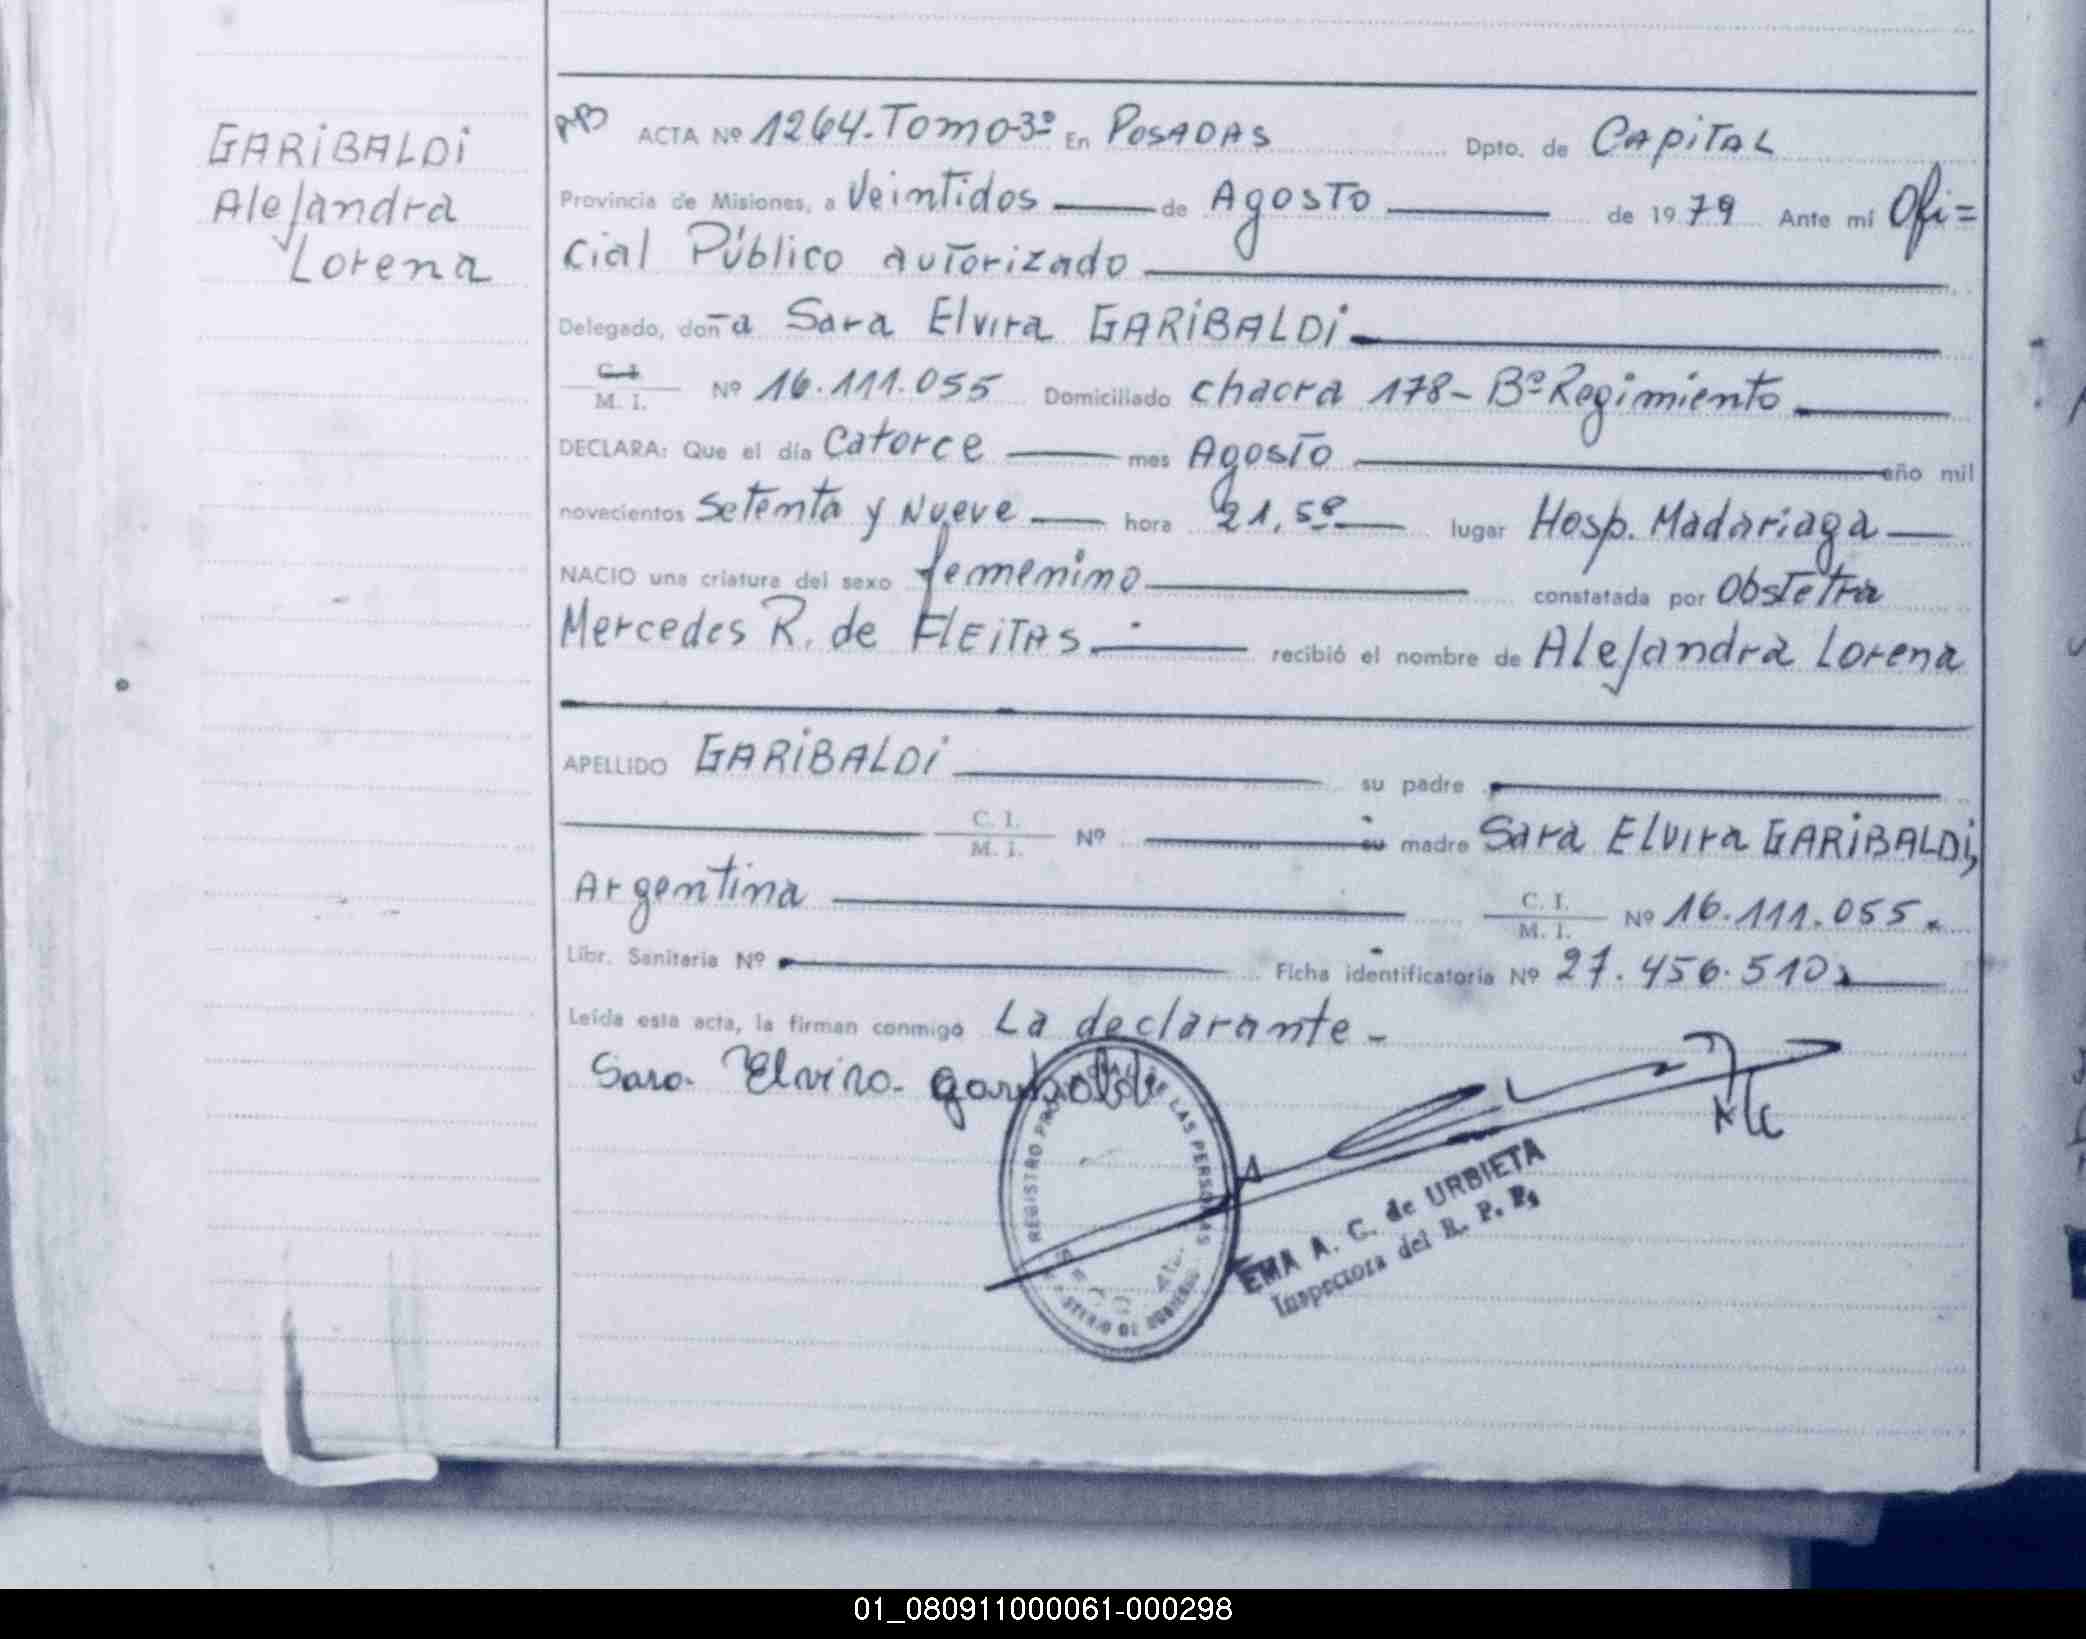 GARIBALDI
Alejandra
Lorena
ACTA Nº 1264.Tomo-3º En POSADAS Dpto. de CAPITAL
Provincia de Misiones, a Veintidos de AgosTo de 1979 Ante mí Ofi=
cial Público autorizado
Delegado, doña Sara Elvira GARIBALDI
C. I. M. I. Nº 16.111.055 Domiciliado chacra 178- Bº Regimiento
DECLARA: Que el día Catorce mes Agosto año mil
novecientos setenta y Nueve hora 21,5º lugar Hosp. Madariaga
NACIO una criatura del sexo femenino constatada por Obstetra
Mercedes R. de FLEITAS recibió el nombre de Alejandra Lorena
APELLIDO GARIBALDI su padre
C. I. M. I. Nº su madre Sara Elvira GARIBALDI,
Argentina C. I. M. I. Nº 16.111.055.
Libr. Sanitaria Nº Ficha identificatoria Nº 27.456.510
Leída esta acta, la firman conmigo La declarante -
Sara Elvira garibaldi
REGISTRO PROVINCIAL DE LAS PERSONAS
EMA A. C. de URBIETA
Inspectora del R. P. P.
01_080911000061-000298